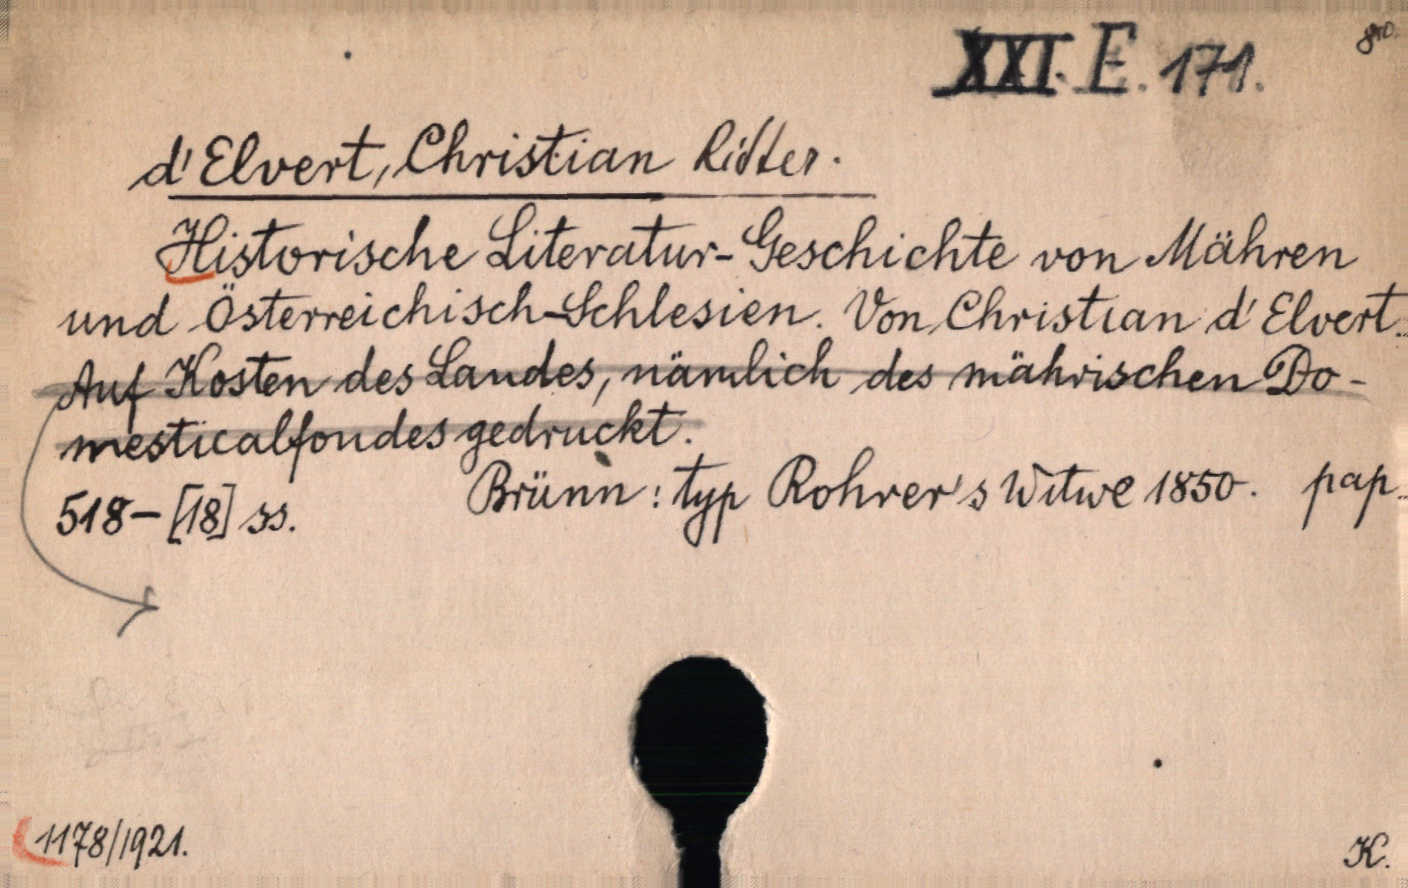 XXI. E. 171.
d'Elvert, Christian Ritter.
Historische Literatur-Geschichte von Mähren
und Österreichisch-Schlesien. Von Christian d'Elvert.
Auf Kosten des Landes, nämlich des mährischen Do-
mesticalfondes gedruckt.
Brünn: typ Rohrer's Witwe 1850. pap.
518-[18] ss.
1178/1921.
K.